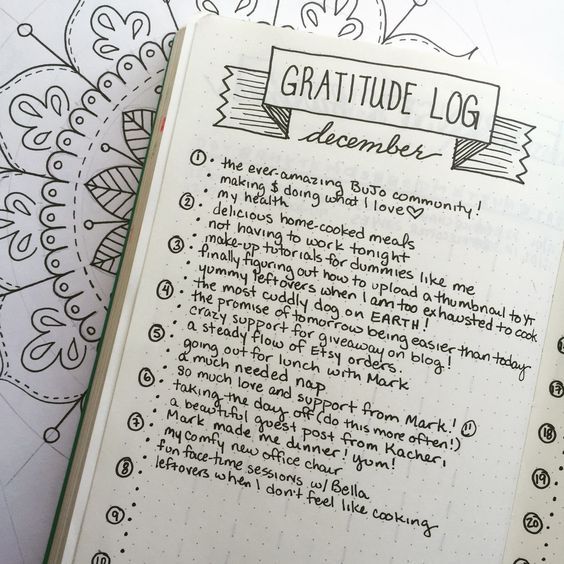 GRATITUDE LOG
december
1 • the ever-amazing BuJo community!
• making $ doing what I love♡
• my health
2 • delicious home-cooked meals
• not having to work tonight
• make-up tutorials for dummies like me
3 • finally figuring out how to upload a thumbnail to YT
• yummy leftovers when I am too exhausted to cook
• the most cuddly dog on EARTH!
4 • the promise of tomorrow being easier than today
• crazy support for giveaway on blog!
• a steady flow of Etsy orders.
5 • going out for lunch with Mark
• a much needed nap
• so much love and support from Mark!
6 • taking the day off (do this more often!)
• a beautiful guest post from Kacheri
• Mark made me dinner! Yum!
7 • my comfy new office chair
• fun face-time sessions w/ Bella
• leftovers when I don't feel like cooking
8
9
10
18
19
20